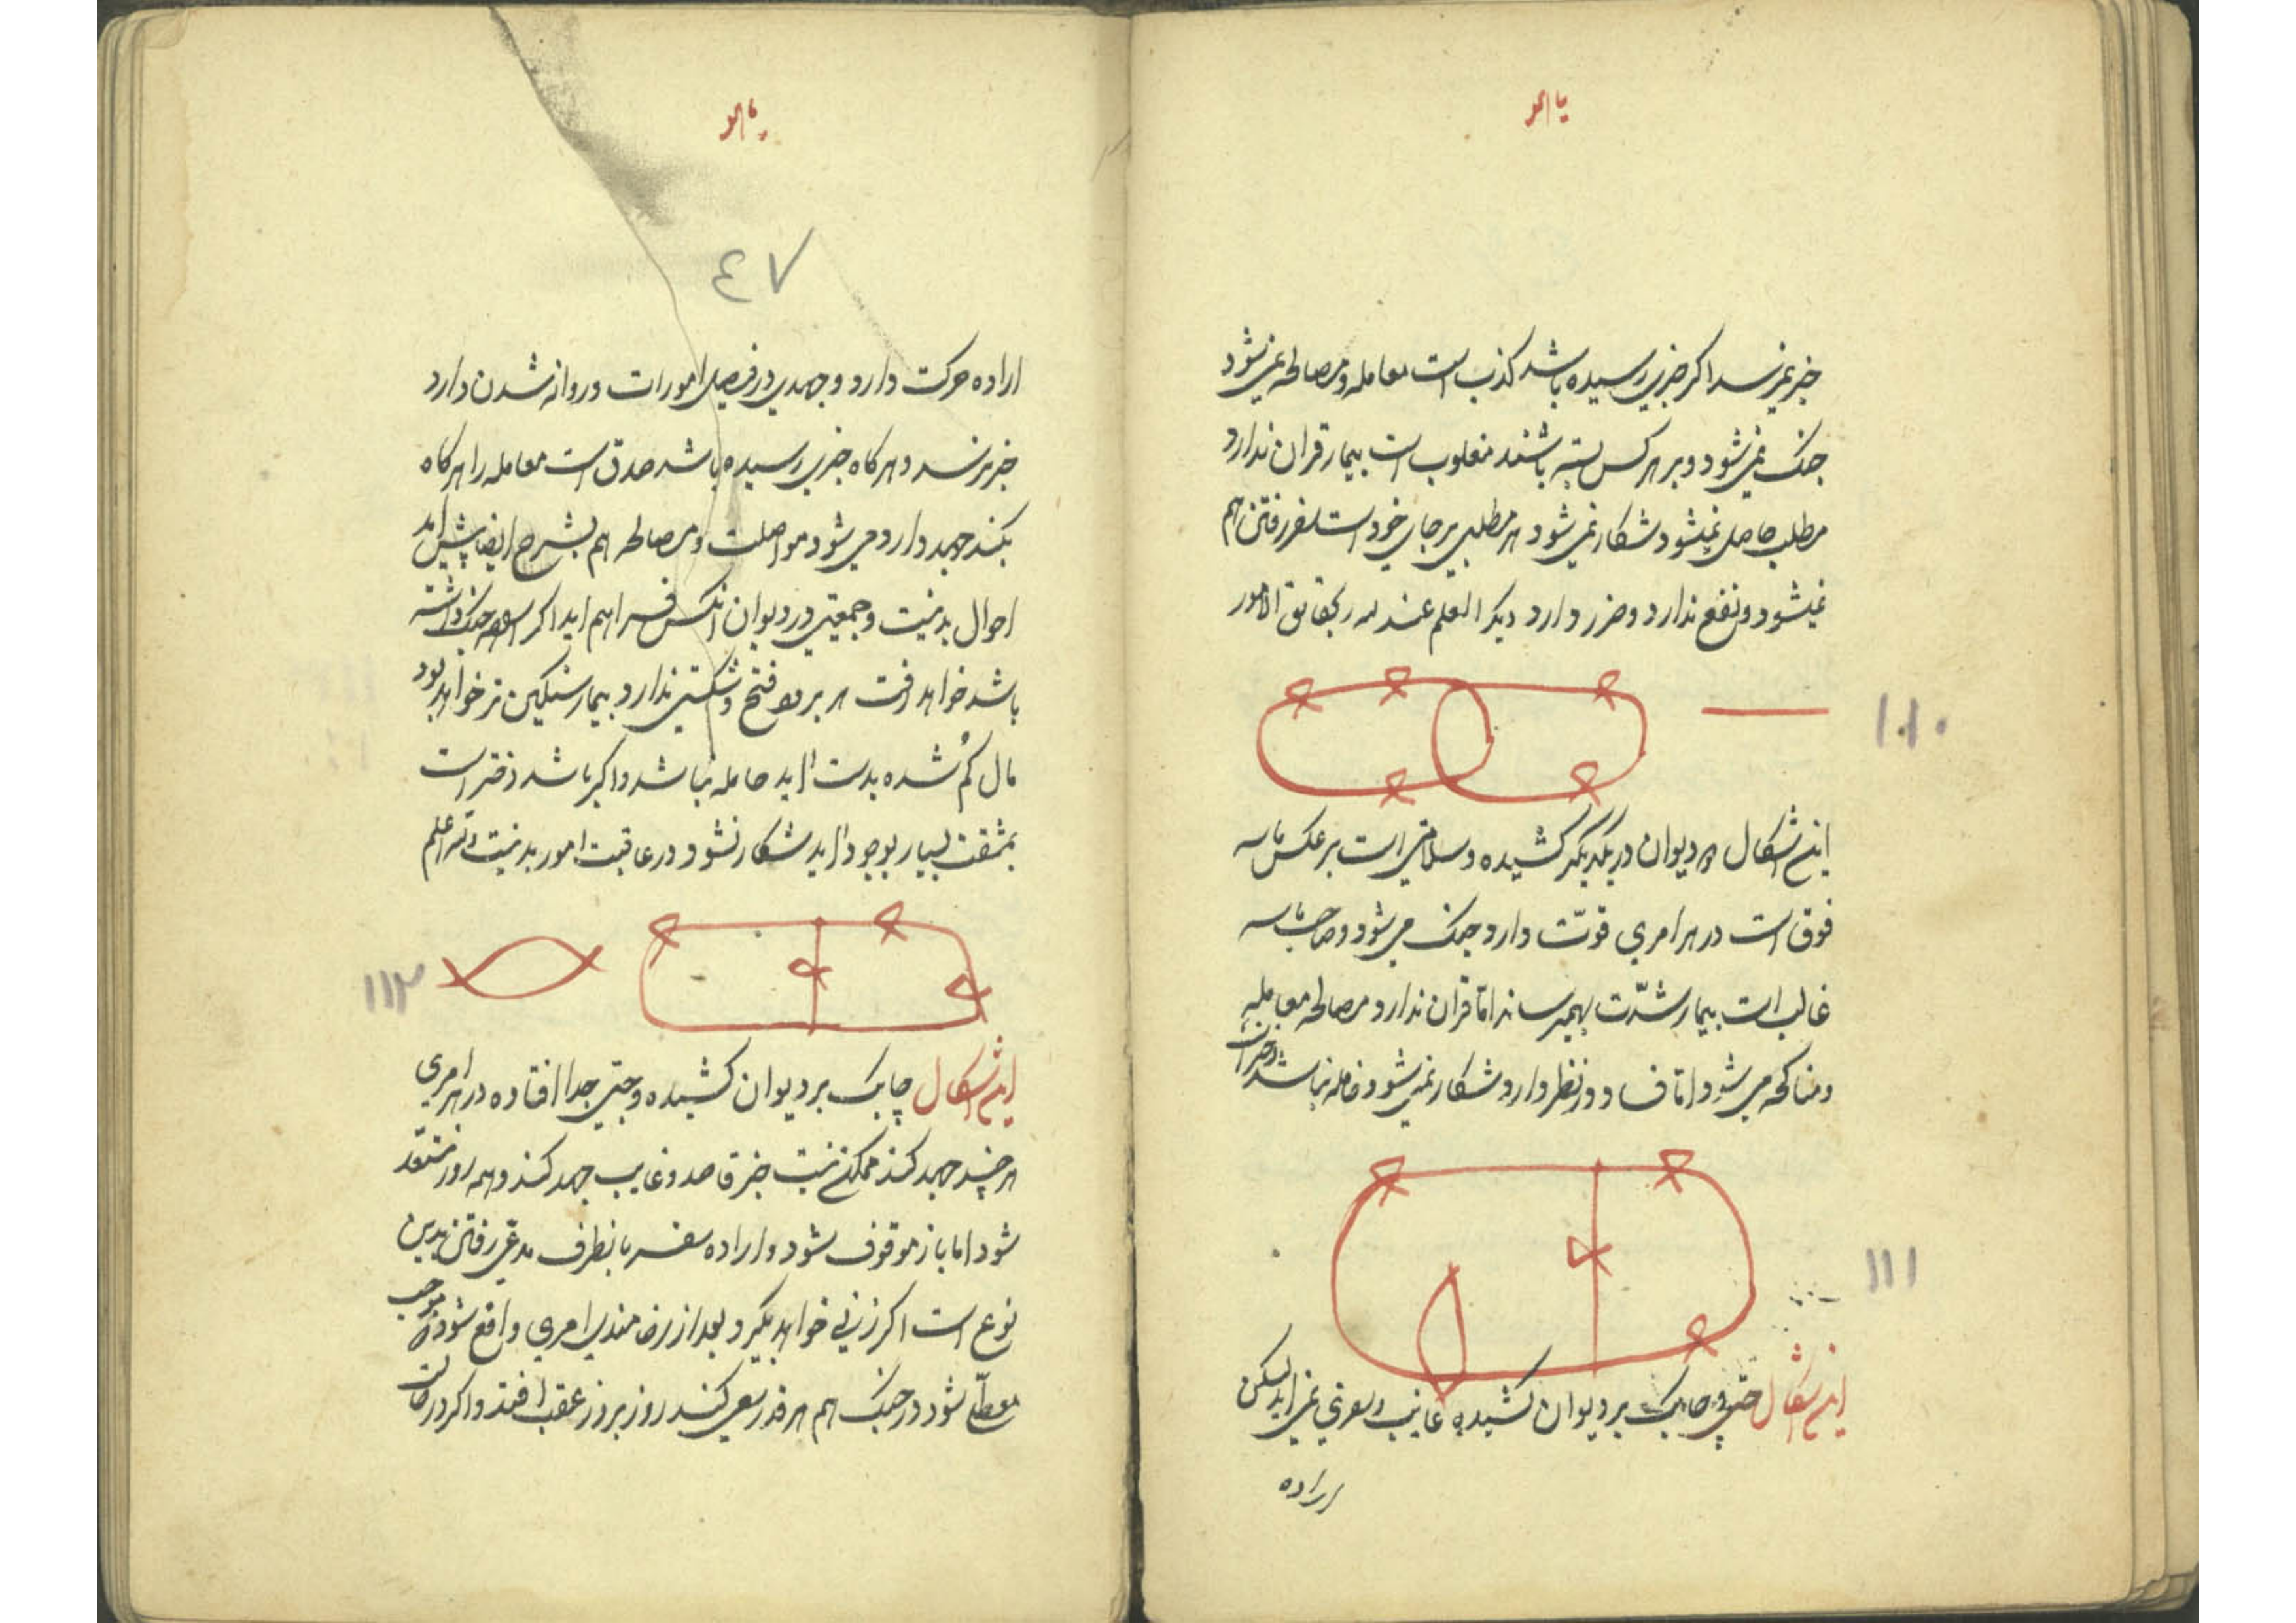 یا هو
خبر نمیرسد اکر خبری رسیده باشد کذب است معامله و مصالحه نمیشود
جنک نمی شود و بر هر کس بسته باشند مغلوب است بیمار قران ندارد
مطلب حاصل نمیشود شکار نمی شود هر مطلبی بر جای خود است سفر رفتن هم
نمیشود و نفع ندارد و ضرر دارد دیکر العلم عند الله بحقایق الامور
۱۱۰
این اشکال دیوان در یکدیکر کشیده و سلامتی است بر عکس
فوق است در هر امری قوّت دارد جنک می شود و صاحب
غالب است بیمار شدّت بهمیرساند اما قران ندارد مصالحه معامله
و مناکحه می شود اما در نظر دارد شکار نمی شود حامله نباشد دختر است
۱۱۱
این اشکال چاپک بر دیوان کشیده غایب نمی اید لیکن
اراده
یا هو
٤٧
اراده حرکت دارد و جهدی در فیصل امورات و روانه شدن دارد
خبر برسد و هر کاه خبری رسیده باشد صدق است معامله را هر کاه
بکند جهد دارد می شود مواصلت و مصالحه هم بشرح ایضا پیش امد
احوال بد نیست و جمعیتی در دیوان انکس فراهم اید اکر جنک داشته
باشد خواهد رفت هر بر دو فتح و شکستی ندارد بیمار سنکین تر خواهد بود
مال کم شده بدست اید حامله نباشد و اکر باشد دختر است
بمشقت بسیار بوجود اید شکار نشود در عاقبت امور بد نیست والله اعلم
۱۱۲
این اشکال چاپک بر دیوان کشیده و جدا افتاده در هر امری
هر چند جهد کند ممکن نیست خبر قاصد و غایب جهد کند و همه روز مستعد
شود اما باز موقوف شود و اراده سفر بانطرف مدعی رفتن بدین
نوع است اکر زنی خواهد بکیرد بعد از رضامندی امری واقع شود که موجب
معطلی شود در جنک هم هر قدر سعی کند روز بروز عقب افتد و اکر در